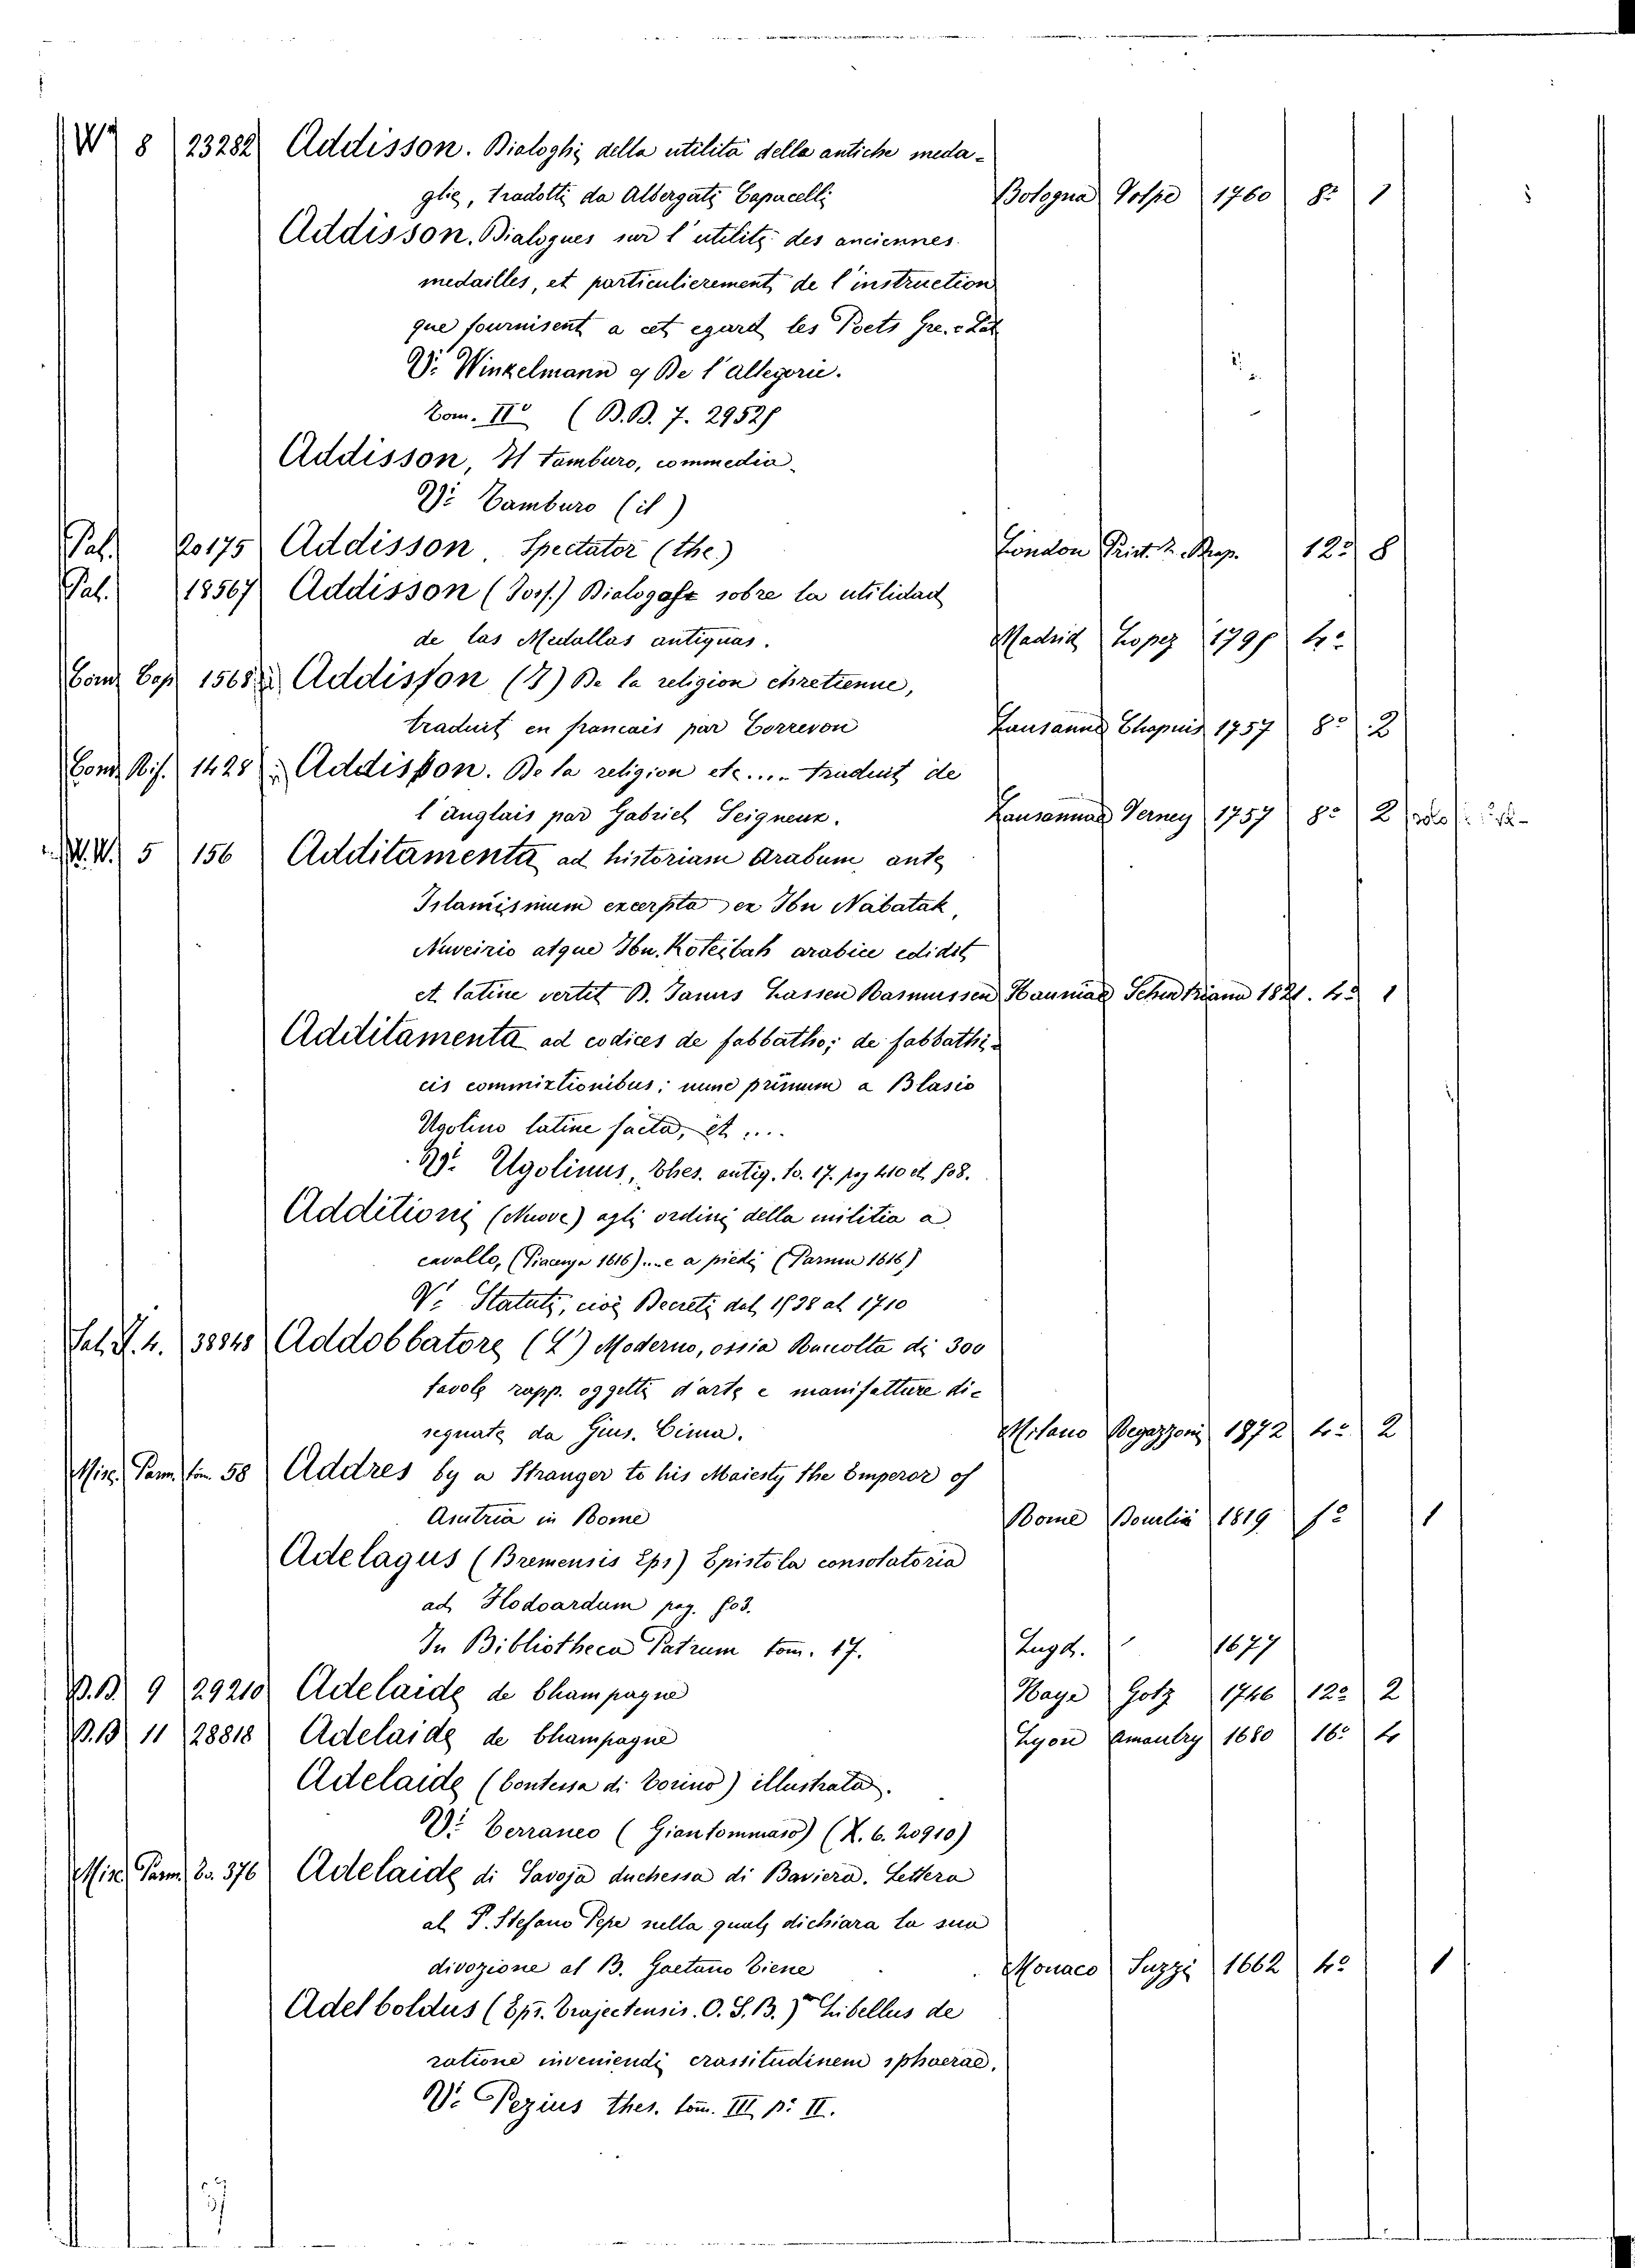 W 8 23282 Addisson. Dialoghi della utilità della antiche meda-
glie, tradotti da Albergati Capacelli Bologna Volpe 1760 8º 1
Addisson. Dialogues sur l'utilité des anciennes
medailles, et particulierement de l'instruction
que fournisent a cet egard les Poets Gre. e Lat
V: Winkelmann De l'allegorie.
Tom. IIº (B.B. 7. 29528
Addisson, Il tamburo, commedia.
V: Tamburo (il)
Pal. 20175 Addisson. Spectator (the) London 12º 8
Pal. 18567 Addisson (Jos.) sobre la utilidad
de las Medallas antiquas. Madrid Lopez 4º
1568 Addisson (J) De la religion chretienne,
traduit en francais par Correvon Lausanne Chapuis 1757 8º 2
1428 Addisson. De la religion etc.... traduit de
l'anglais par Gabriel Seigneux. Lausannae Verney 1757 8º 2
W.W. 5 156 Additamenta ad historiam Arabum ante
Islamismum excerpta ex Ibn Nabatah,
Nuveirio atque Ibn. Koteibah arabice edidit
et latine vertit D. Janus Lassen Rasmussen Hauniae 1821. 4º 1
Additamenta ad codices de sabbatho; de sabbathi-
cis commixtionibus; nunc primum a Blasio
Ugolino latine facta, et ....
V: Ugolinus, Thes. antiq. to. 17. pag 410 et 508.
Additioni (Nuove) agli ordini della militia a
cavallo, (Piacenza 1616)...e a piedi (Parma 1616)
V: Statuti, cioè Decreti dal al 1710
Sal. J. 4. 38848 Addobbatore (L') Moderno, ossia Raccolta di 300
tavole rapp. oggetti d'arte e manifatture di-
segnate da Gius. Cima. Milano Regazzoni 1872 4º 2
Misc. Parm. tom. 58 Addres by a Stranger to his Maiesty the Emperor of
Austria in Rome Rome Bourlié 1819 fº 1
Adelagus (Bremensis Eps) Epistola consolatoria
ad Flodoardum pag. 503.
In Bibliotheca Patrum tom. 17. Lugd. 1677
B.B. 9 29210 Adelaide de Champagne Haye Gotz 1746 12º 2
B.B 11 28818 Adelaide de Champagne Lyon Amaulry 1680 16º 4
Adelaide (Contessa di Torino) illustrata.
V: Terraneo (Giantommaso) (X. 6. 20910)
Misc Parm. to. 376 Adelaide di Savoja duchessa di Baviera. Lettera
al P. Stefano Pepe nella quale dichiara la sua
divozione al B. Gaetano Tiene Monaco 1662 4º 1
Adelboldus (Eps. Trajectensis. O. S. B.) Libellus de
ratione inveniendi crassitudinem sphaerae.
V: Pezius thes. tom. III pº II.